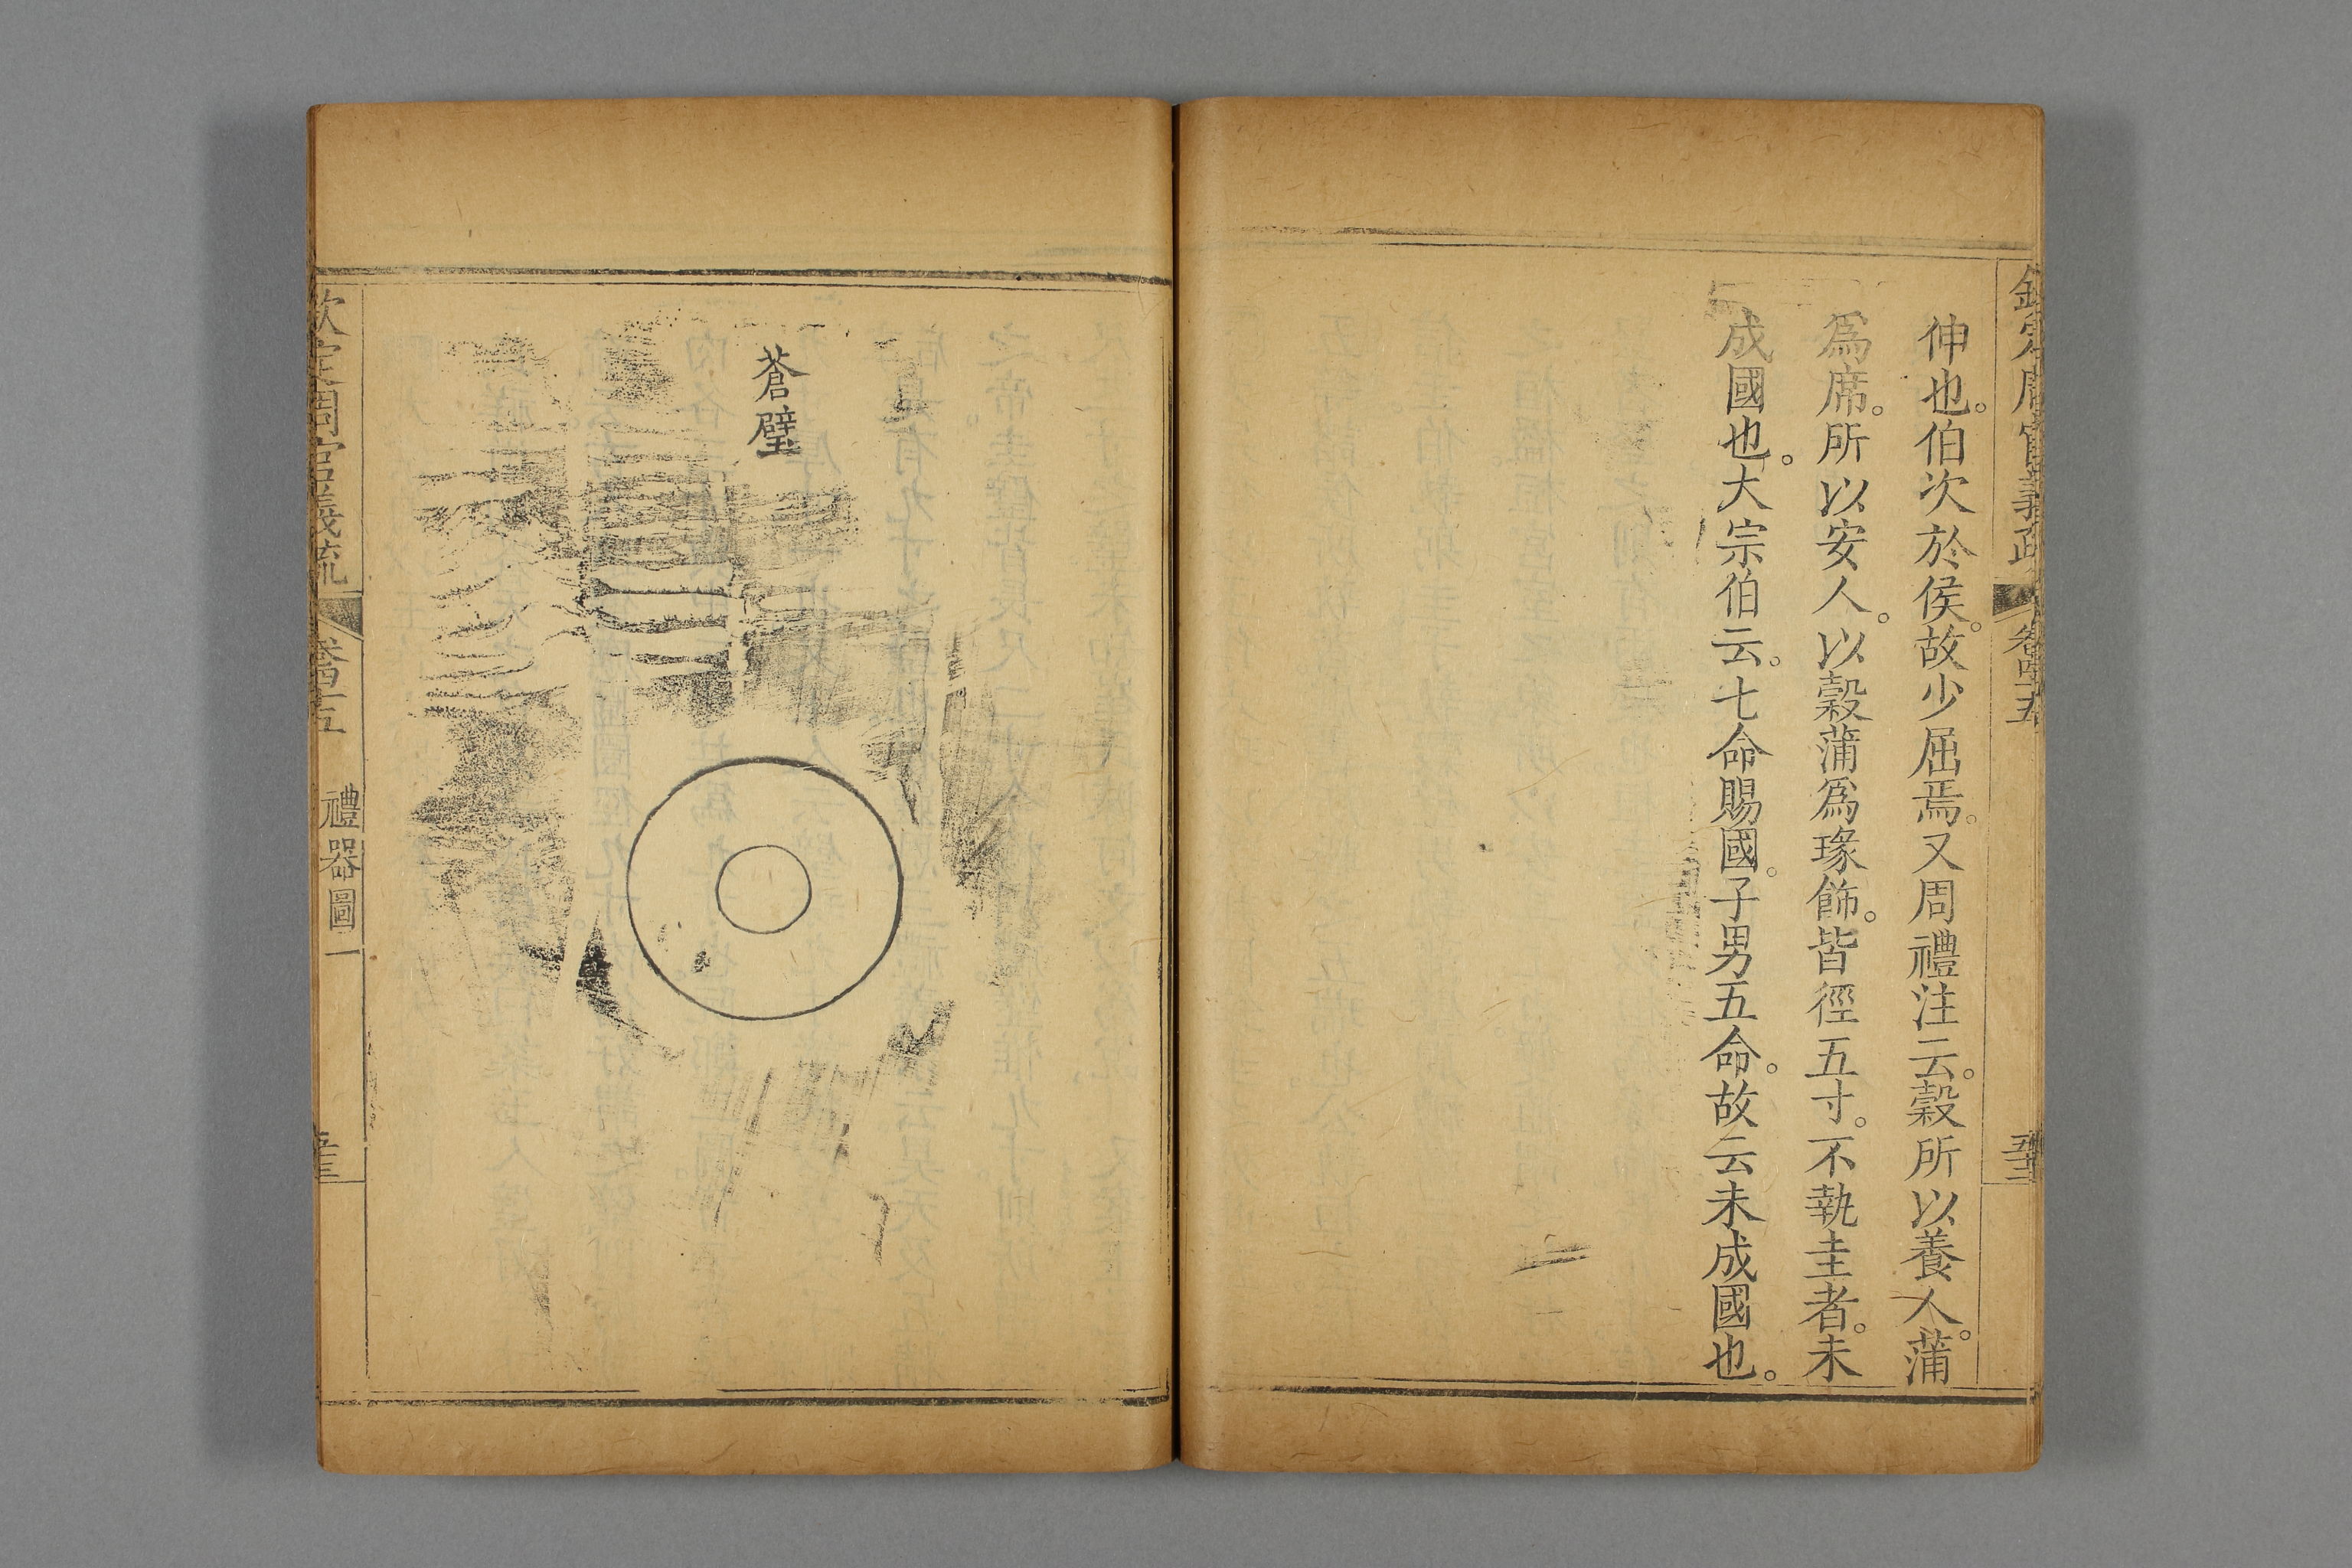 欽定周官義疏 卷四十五
伸也。伯次於侯。故少屈焉。又周禮注云。穀所以養人。蒲
爲席。所以安人。以穀蒲爲瑑飾。皆徑五寸。不執圭者。未
成國也。大宗伯云。七命賜國。子男五命。故云未成國也。
蒼璧
欽定周官義疏 禮器圖一